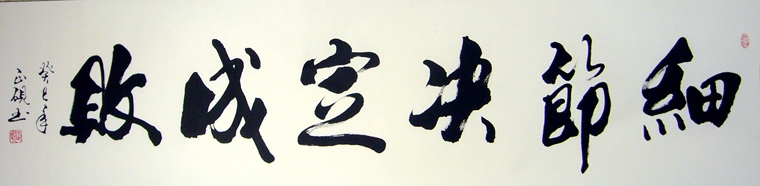 細節决定成敗
癸巳年
正硯书